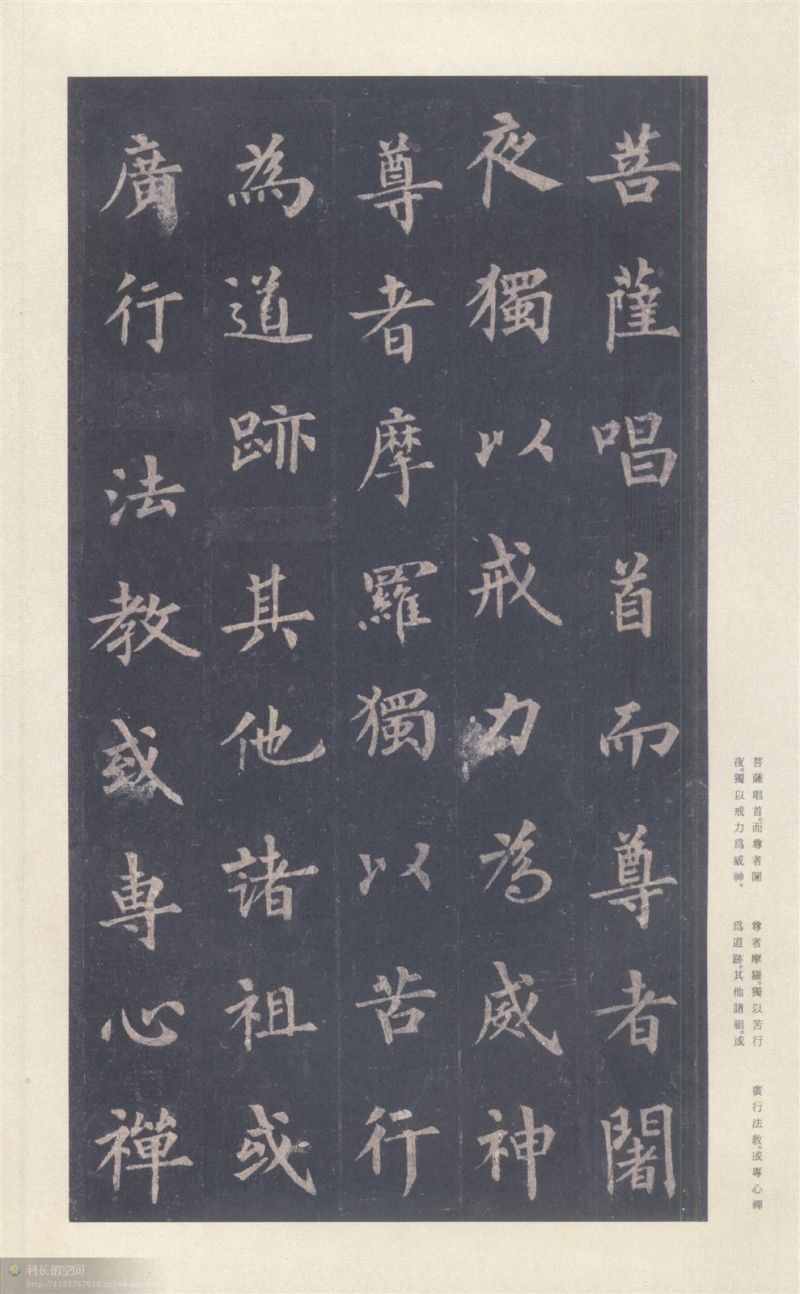 菩薩唱首而尊者闍
夜獨以戒力為威神
尊者摩羅獨以苦行
為道跡其他諸祖或
廣行法教或専心禪
菩薩唱首。而尊者闍
夜。獨以戒力爲威神。
尊者摩羅。獨以苦行
爲道跡。其他諸祖。或
廣行法敎。或專心禪
科长的空间